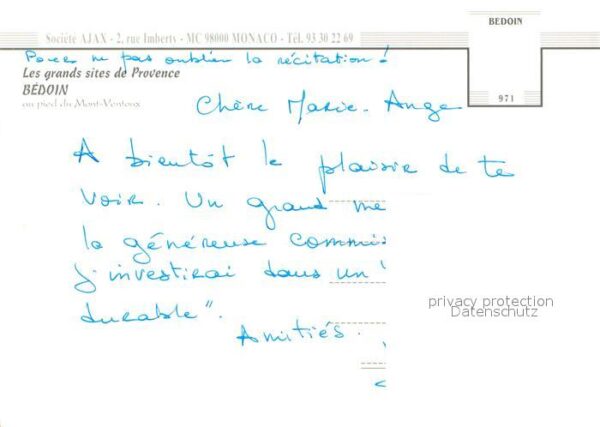 Société AJAX - 2, rue Imberty - MC 98000 MONACO - Tél. 93 30 22 69
BEDOIN
971
Pour ne pas oublier la récitation !
Les grands sites de Provence
BÉDOIN
au pied du Mont-Ventoux
Chère Marie-Ange
A bientôt le plaisir de te
voir. Un grand me
la généreuse commis
j'investirai dans un "
durable".
Amitiés.
privacy protection
Datenschutz